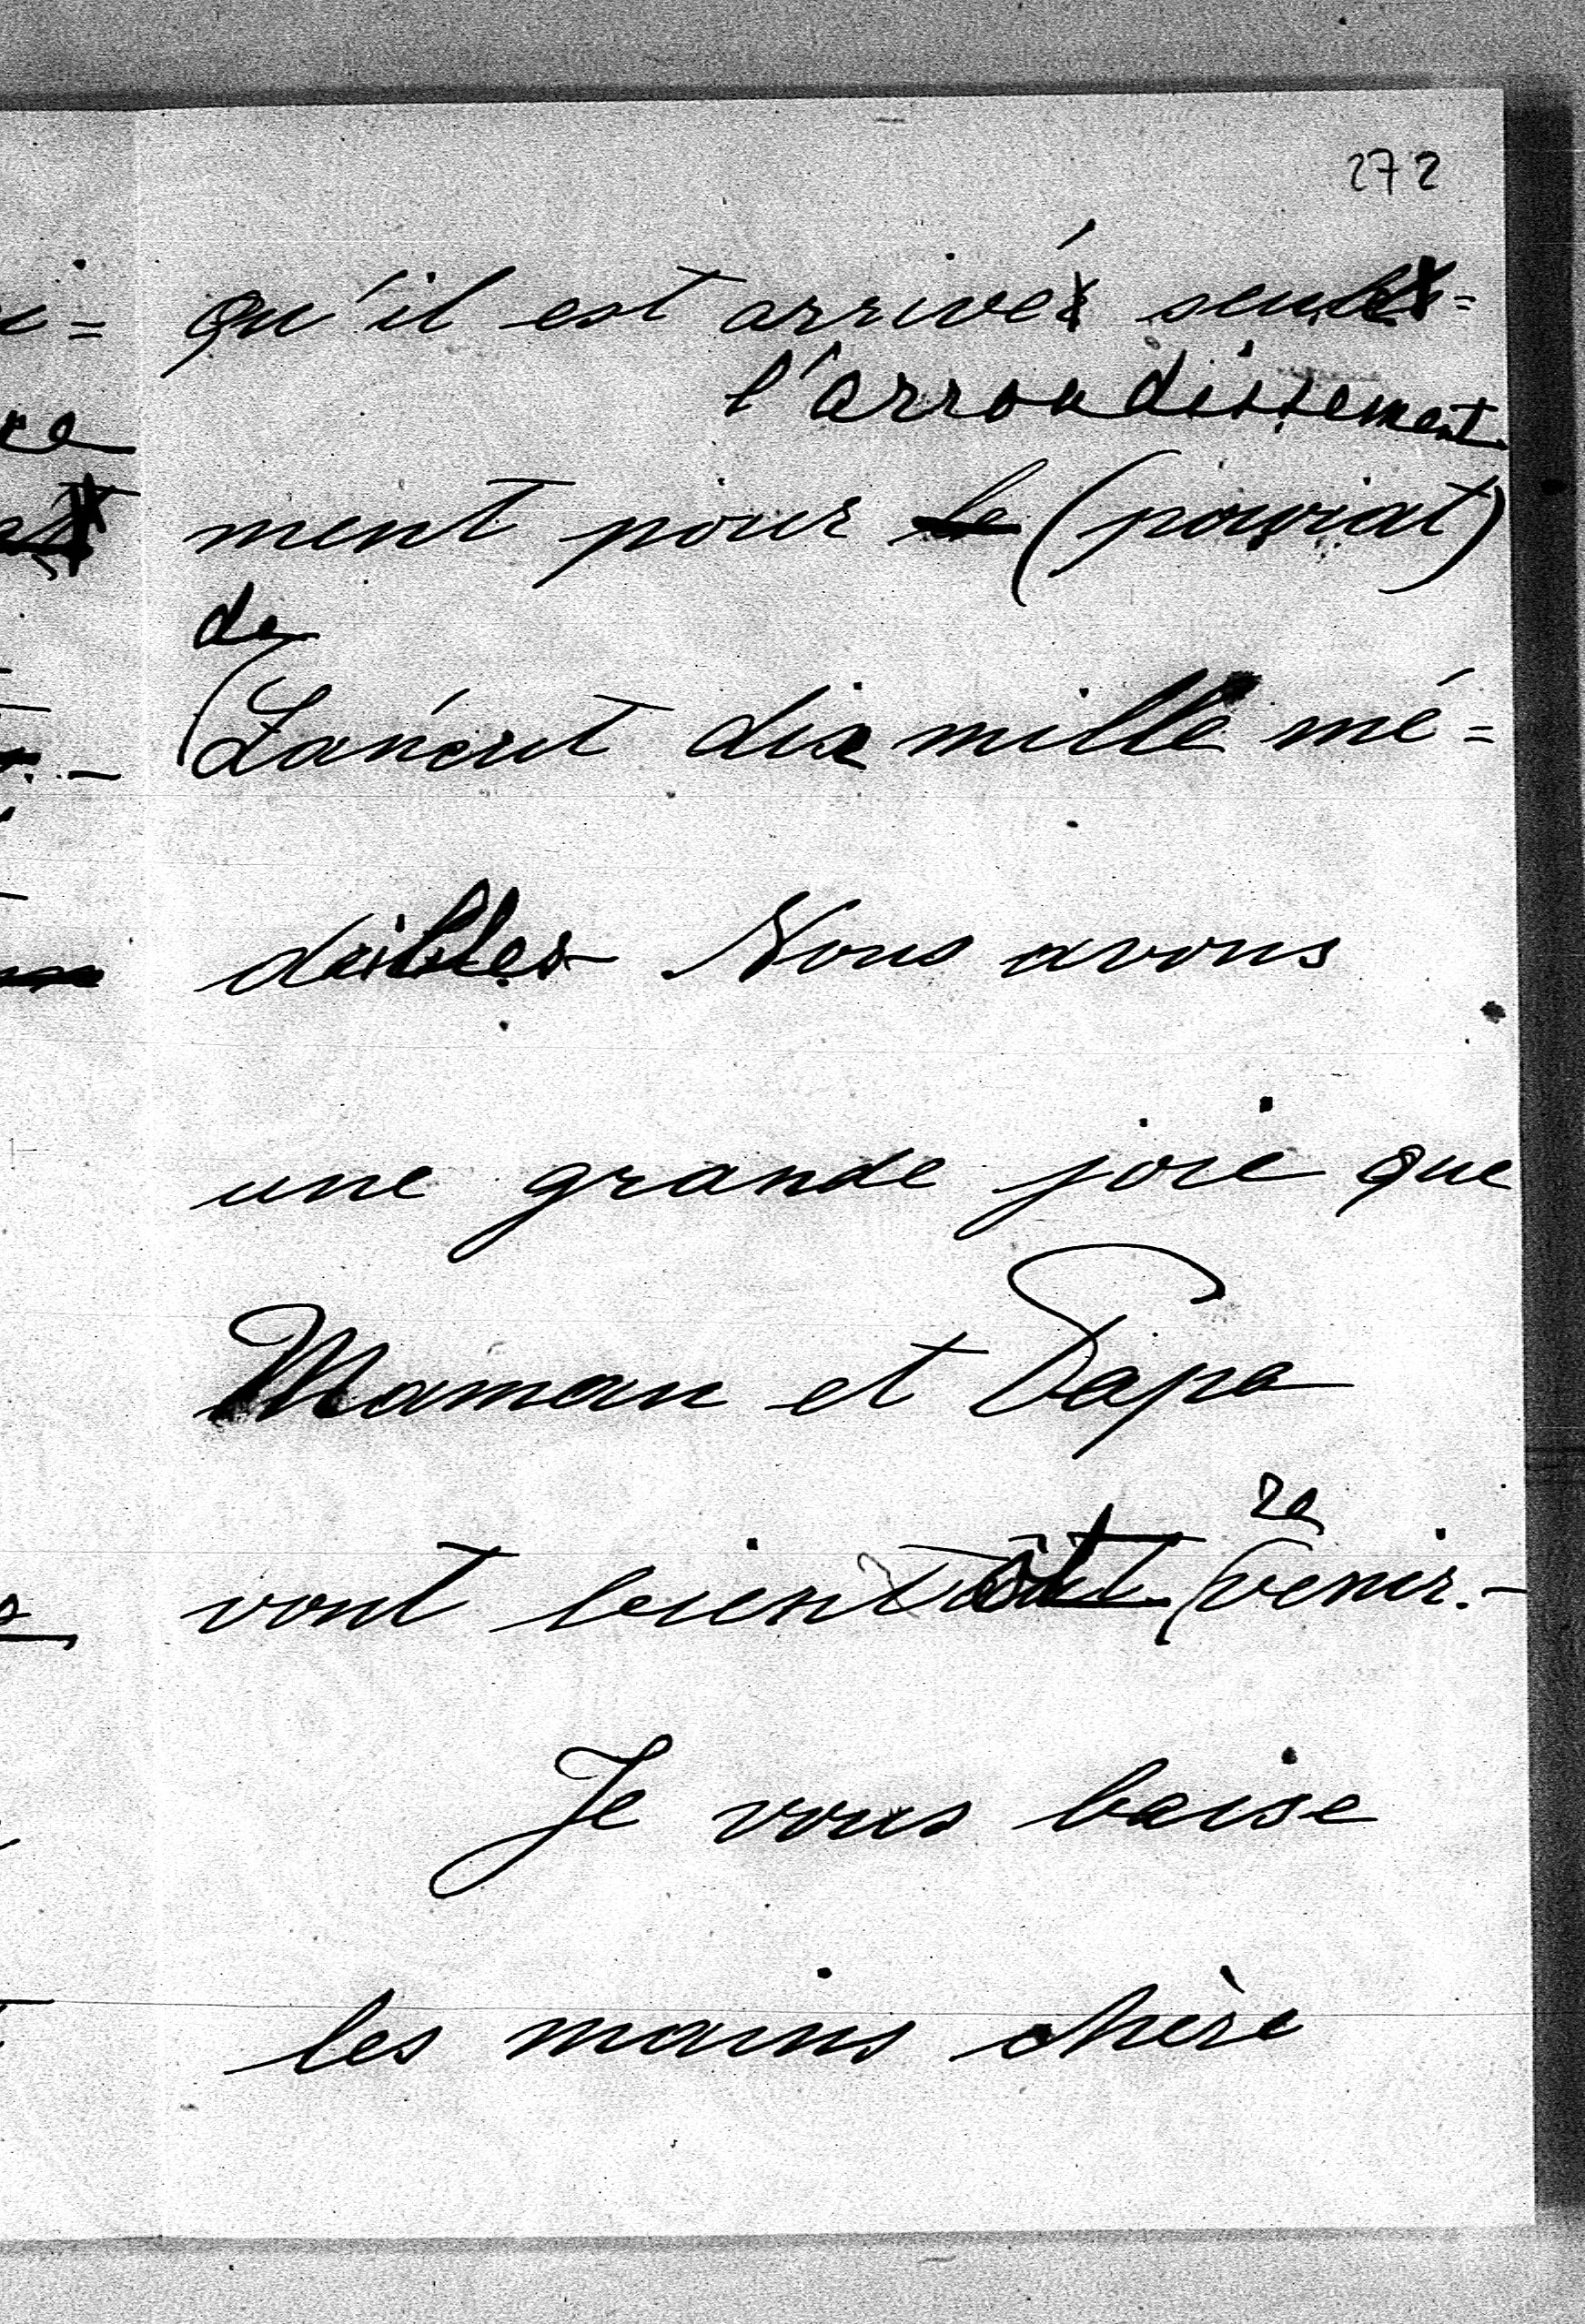 272
qu'il est arrivé seule=
l'arrondissement
ment pour le (powiat)
de
(Łańcut dix mille mé=
dailles Nous avons
une grande joie que
Maman et Papa
re
vont bientôt (venir.-
Je vous baise
les mains chère